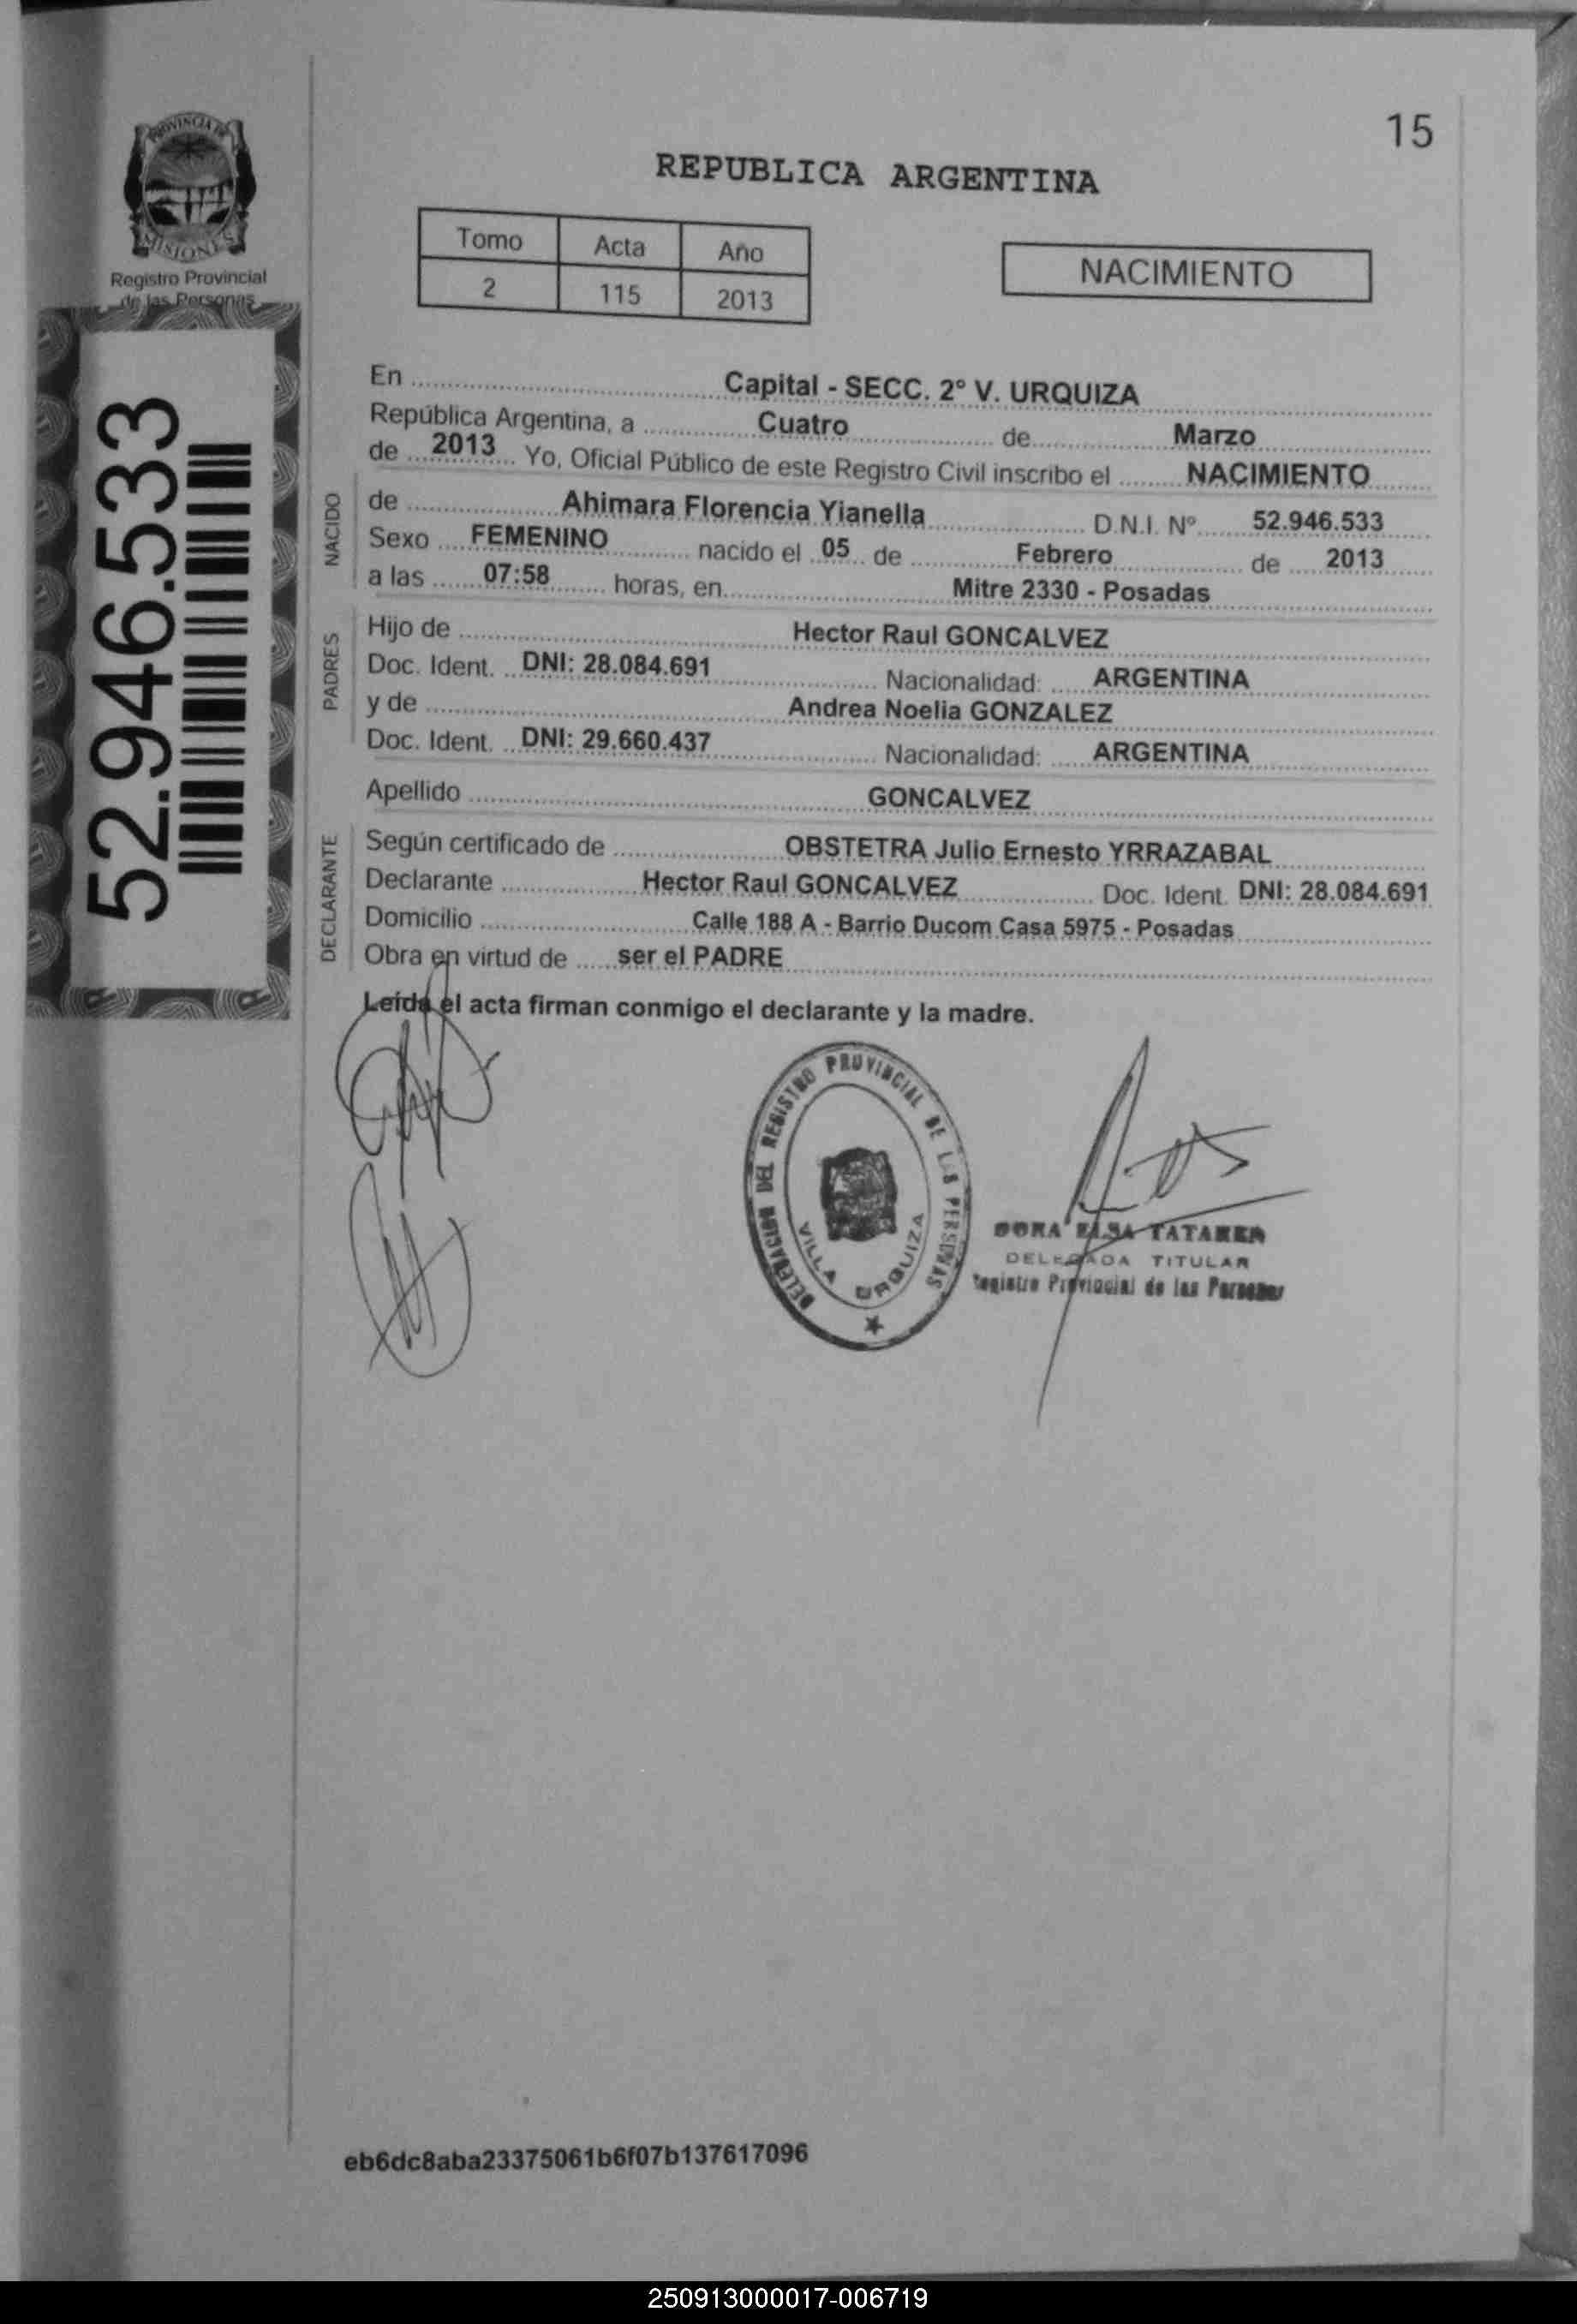 15
PROVINCIA DE
MISIONES
Registro Provincial
de las Personas
52.946.533
REPUBLICA ARGENTINA
Tomo Acta Año
2 115 2013
NACIMIENTO
En Capital - SECC. 2° V. URQUIZA
República Argentina, a Cuatro de Marzo
de 2013 Yo, Oficial Público de este Registro Civil inscribo el NACIMIENTO
NACIDO
de Ahimara Florencia Yianella D.N.I. Nº 52.946.533
Sexo FEMENINO nacido el 05 de Febrero de 2013
a las 07:58 horas, en Mitre 2330 - Posadas
PADRES
Hijo de Hector Raul GONCALVEZ
Doc. Ident. DNI: 28.084.691 Nacionalidad: ARGENTINA
y de Andrea Noelia GONZALEZ
Doc. Ident. DNI: 29.660.437 Nacionalidad: ARGENTINA
Apellido GONCALVEZ
DECLARANTE
Según certificado de OBSTETRA Julio Ernesto YRRAZABAL
Declarante Hector Raul GONCALVEZ Doc. Ident. DNI: 28.084.691
Domicilio Calle 188 A - Barrio Ducom Casa 5975 - Posadas
Obra en virtud de ser el PADRE
Leída el acta firman conmigo el declarante y la madre.
DELEGACION DEL REGISTRO PROVINCIAL DE LAS PERSONAS
VILLA URQUIZA
ELSA
DELEGADA TITULAR
Registro Provincial de las Personas
eb6dc8aba23375061b6f07b137617096
250913000017-006719